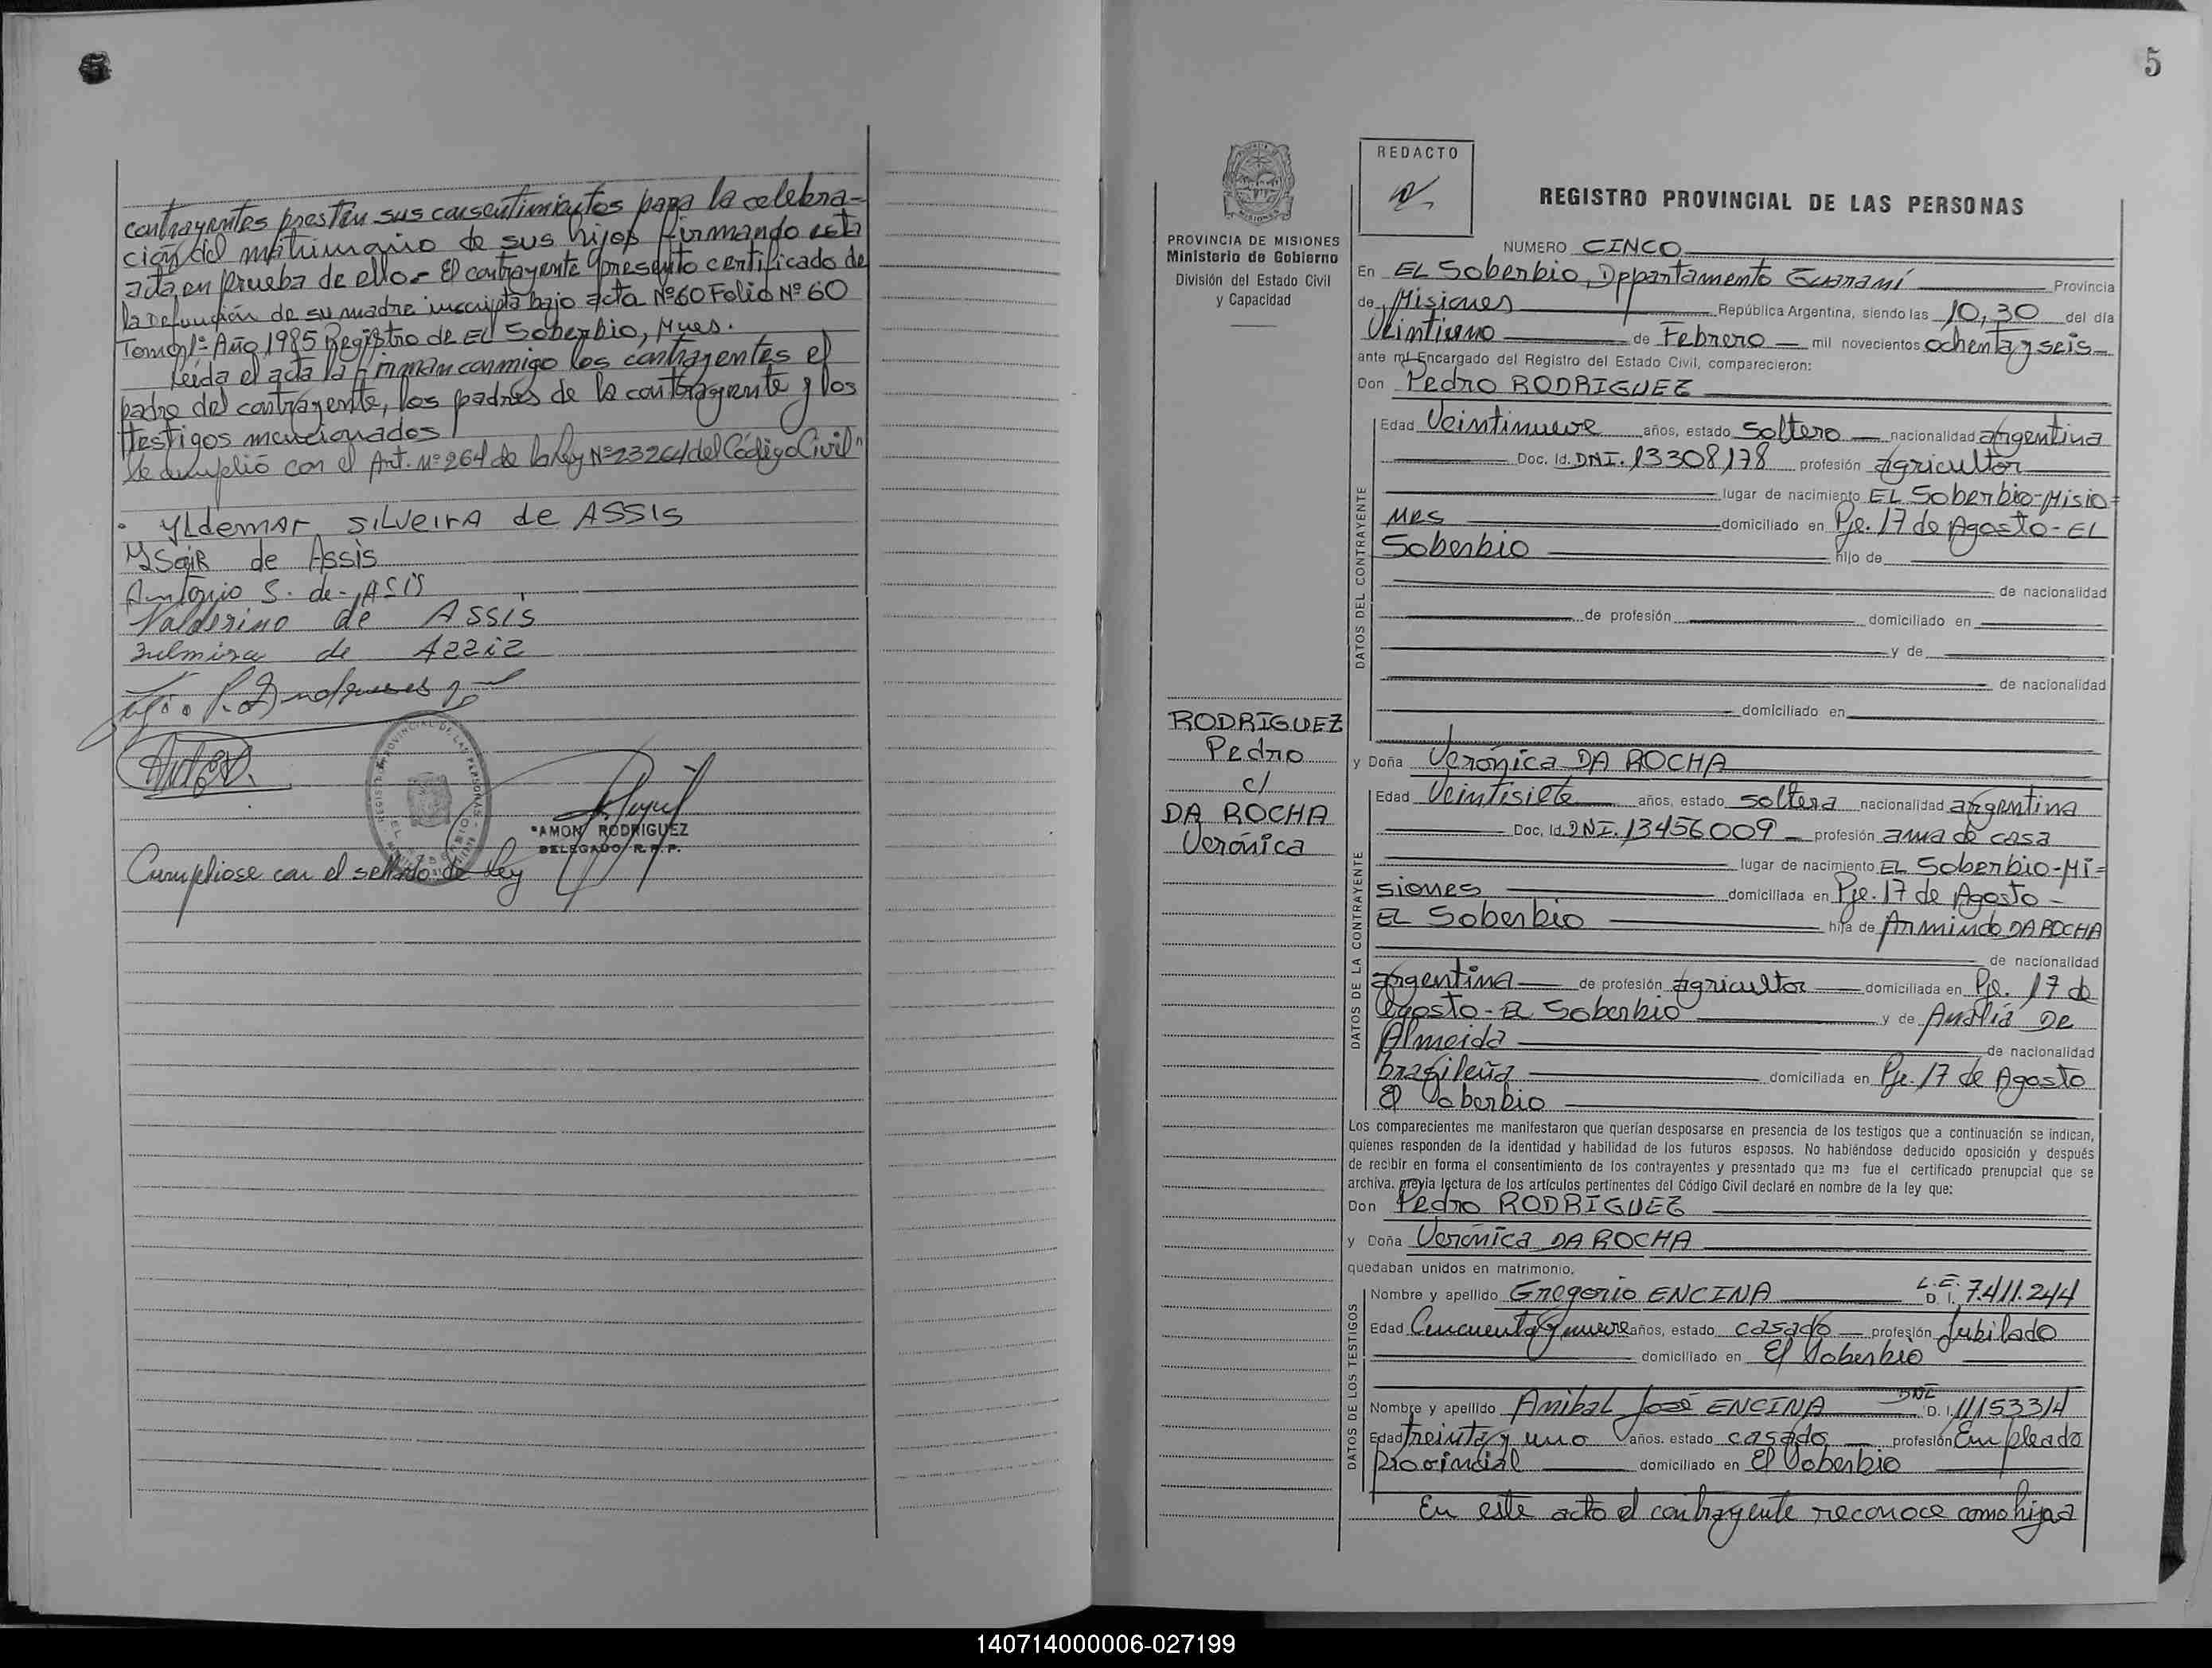 contrayentes prestan sus consentimientos para la celebra=
ción del matrimonio de sus hijos firmando esta
acta en prueba de ello.= El contrayente presento certificado de
la Defunción de su madre inscripta bajo acta Nº60 Folio Nº 60
Tomo 1º Año 1985 Registro de EL Soberbio, Mnes.
Leida el acta la firman conmigo los contrayentes el
padre del contrayente, los padres de la contrayente y los
testigos mencionados
Se cumplió con el Art. Nº 264 de la Ley Nº23264 del Código Civil"
YLdemar SILVeirA de ASSIS
de Assis
Antonio S. de ASIS
Valderino de ASSIS
zulmira de Azziz
AMON RODRIGUEZ
DELEGADO R.P.P.
Cumpliose con el sellado de ley
5
REDACTO
REGISTRO PROVINCIAL DE LAS PERSONAS
PROVINCIA DE MISIONES
Ministerio de Gobierno
División del Estado Civil
y Capacidad
RODRIGUEZ
Pedro
c/
DA ROCHA
Verónica
NUMERO CINCO
En EL Soberbio, Departamento Guaraní Provincia
de Misiones República Argentina, siendo las 10,30 del día
Veintiuno de Febrero mil novecientos ochenta y seis
ante mí Encargado del Registro del Estado Civil, comparecieron:
Don Pedro RODRIGUEZ
DATOS DEL CONTRAYENTE
Edad Veintinueve años, estado soltero nacionalidad argentina
Doc. Id. DNI. 13308178 profesión agricultor
lugar de nacimiento EL Soberbio-Misio=
nes domiciliado en Pje. 17 de Agosto - EL
Soberbio hijo de
de nacionalidad
de profesión domiciliado en
y de
de nacionalidad
domiciliado en
y Doña Verónica DA ROCHA
DATOS DE LA CONTRAYENTE
Edad Veintisiete años, estado soltera nacionalidad argentina
Doc. Id. DNI. 13456009 profesión ama de casa
lugar de nacimiento EL Soberbio-Mi=
siones domiciliada en Pje. 17 de Agosto -
EL Soberbio hija de Armindo DA ROCHA
de nacionalidad
argentina de profesión agricultor domiciliada en Pje. 17 de
Agosto - EL Soberbio y de Analia DE
Almeida de nacionalidad
brasileña domiciliada en Pje. 17 de Agosto
El Soberbio
Los comparecientes me manifestaron que querían desposarse en presencia de los testigos que a continuación se indican,
quienes responden de la identidad y habilidad de los futuros esposos. No habiéndose deducido oposición y después
de recibir en forma el consentimiento de los contrayentes y presentado que me fue el certificado prenupcial que se
archiva. previa lectura de los artículos pertinentes del Código Civil declaré en nombre de la ley que:
Don Pedro RODRIGUEZ
y Doña Verónica DA ROCHA
quedaban unidos en matrimonio.
DATOS DE LOS TESTIGOS
Nombre y apellido Gregorio ENCINA L.E. D. I. 7.411.244
Edad Cincuenta y nueve años, estado casado profesión Jubilado
domiciliado en El Soberbio
Nombre y apellido Anibal José ENCINA DNI D. I. 11153314
Edad treinta y uno años. estado casado profesión Empleado
Provincial domiciliado en El Soberbio
En este acto el contrayente reconoce como hijos a
140714000006-027199